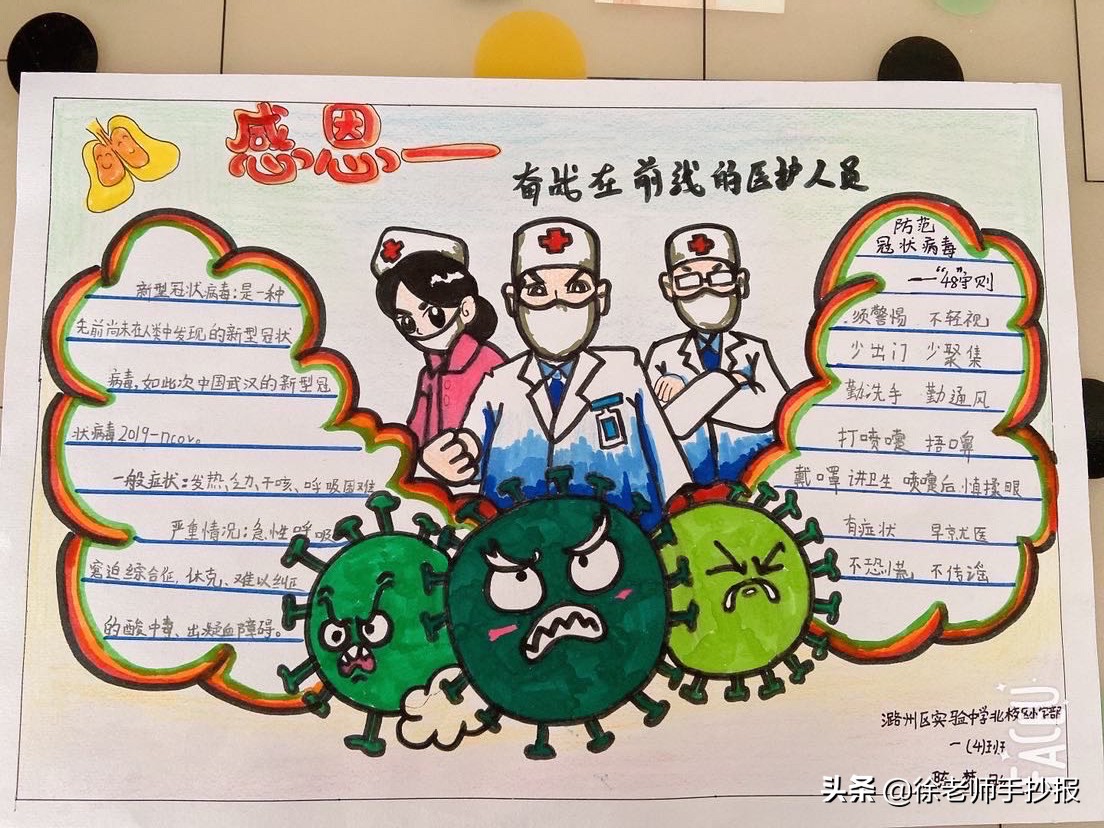 感恩一
奋战在前线的医护人员
新型冠状病毒:是一种
先前尚未在人类中发现的新型冠状
病毒,如此次中国武汉的新型冠
状病毒2019-ncov。
一般症状:发热、乏力、干咳、呼吸困难
严重情况:急性呼吸
窘迫综合征,休克、难以纠正
的酸中毒、出凝血障碍。
防范
冠状病毒
一"48"守则
须警惕 不轻视
少出门 少聚集
勤洗手 勤通风
打喷嚏 捂口鼻
戴口罩 讲卫生 喷嚏后 慎揉眼
有症状 早就医
不恐慌 不传谣
潞州区实验中学北校
一(4)班
头条 @徐老师手抄报